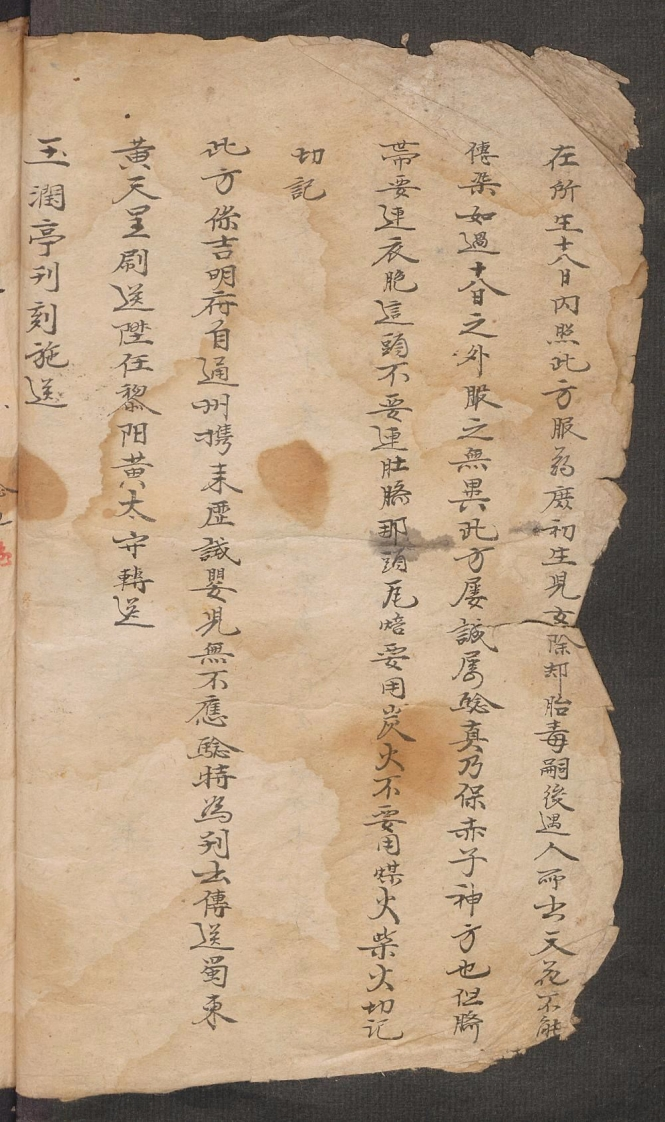 在所生十八日內照此方服药庶初生兒女除却胎毒嗣後遇人而出天花不能
傳染如過十八日之外服之無異此方屡試屡驗真乃保赤子神方也但臍
帶要連衣胞這頭不要連肚臍那頭尾焙要用炭火不要用煤火柴火切记
切記
此方係吉明府自通州携来歷試嬰兒無不應驗特為刋出傳送蜀東
黄天星刷送陞任黎阳黄太守轉送
玉潤亭刋刻施送